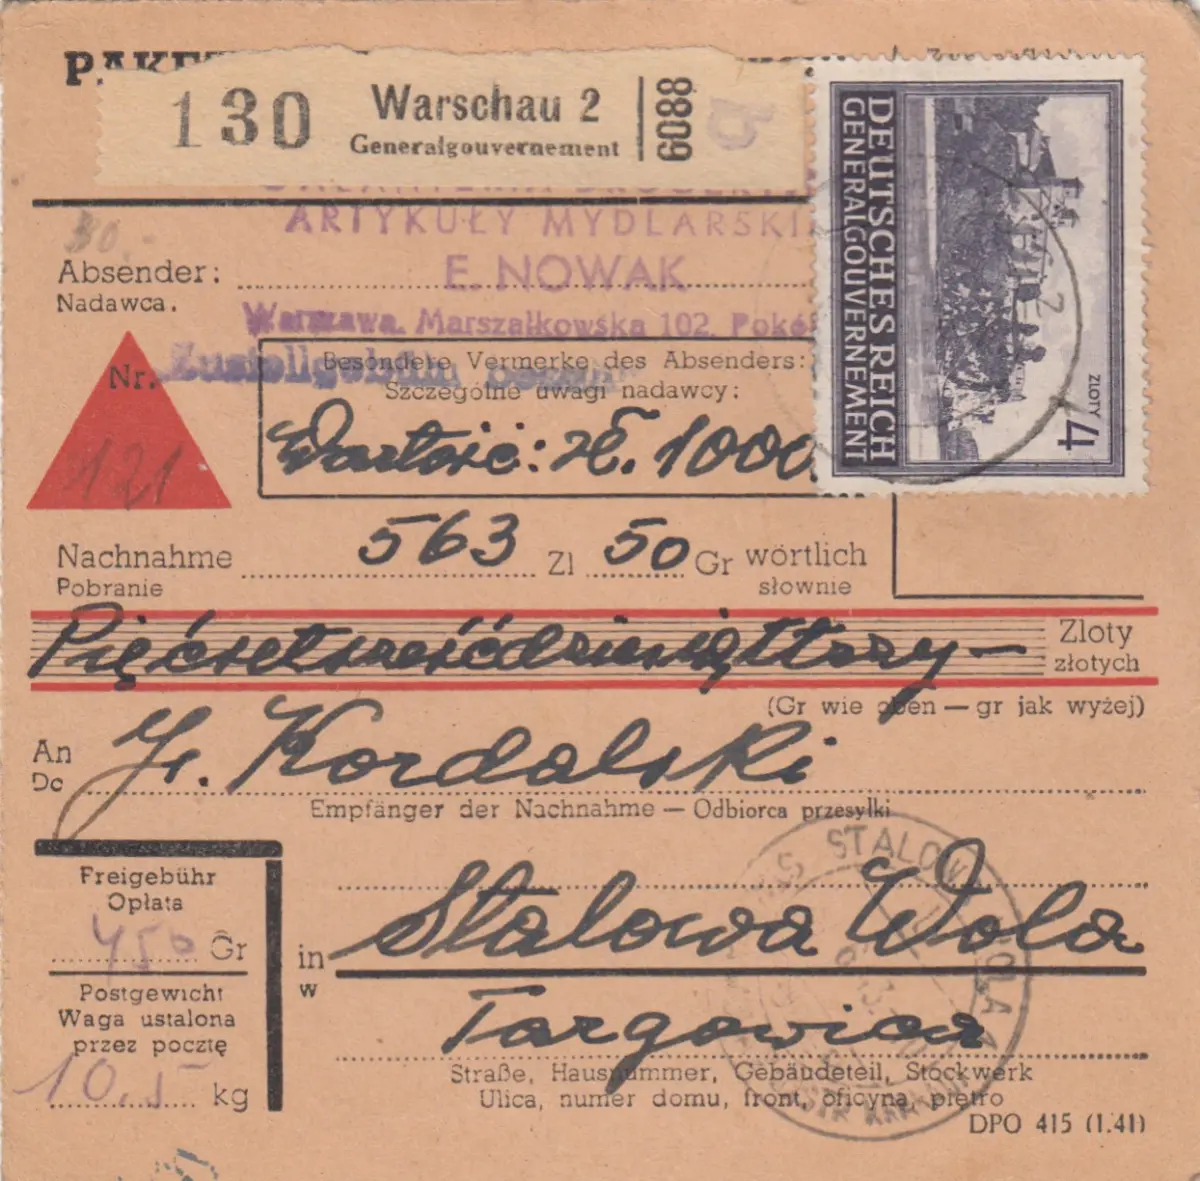 130
Warschau 2
Generalgouvernement
6088
DEUTSCHES REICH
GENERALGOUVERNEMENT
4 ZLOTY
ARTYKUŁY MYDLARSKI
30.-
Absender:
Nadawca.
E. NOWAK
Warszawa. Marszałkowska 102.
Nr. 121
Besondere Vermerke des Absenders:
Szczególne uwagi nadawcy:
Wartość: zł. 1000
Nachnahme 563 Zl 50 Gr wörtlich
Pobranie słownie
Pięćsetsześćdziesiąttrzy —
Zloty
złotych
(Gr wie oben — gr jak wyżej)
An J. Kordalski
Do
Empfänger der Nachnahme — Odbiorca przesyłki
Freigebühr
Opłata
450 Gr
Postgewicht
Waga ustalona
przez pocztę
10,5 kg
in Stalowa Wola
w
Targowica
Straße, Hausnummer, Gebäudeteil, Stockwerk
Ulica, numer domu, front, oficyna, piętro
DPO 415 (1.41)
STALOWA WOLA